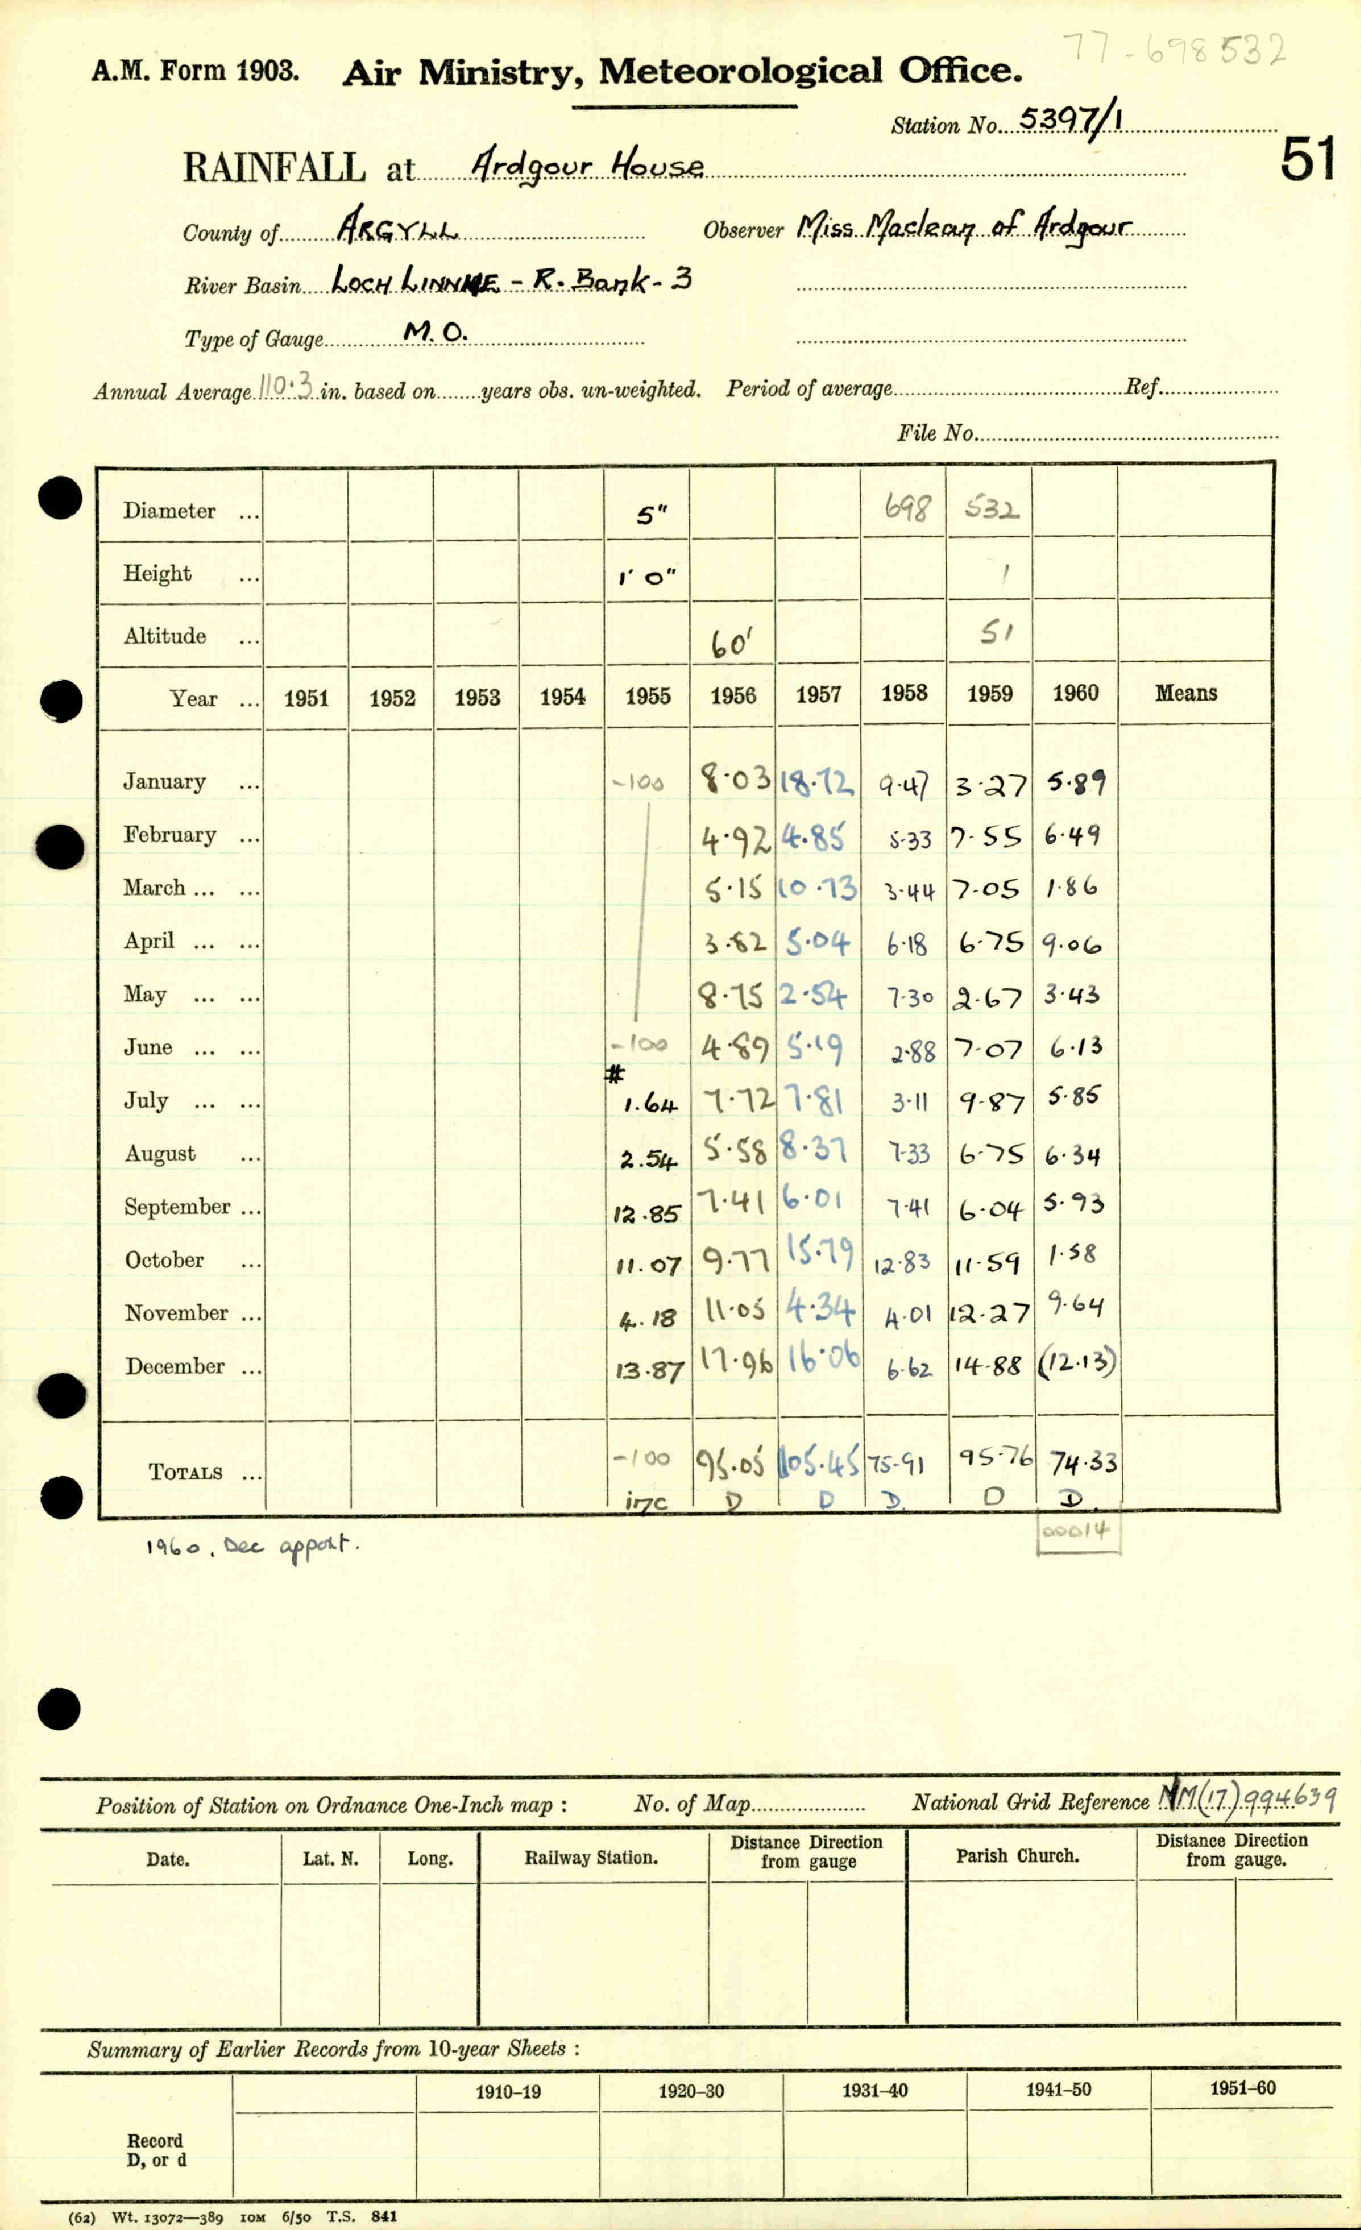 77-698532
A.M. Form 1903. Air Ministry, Meteorological Office.
Station No. 5397/1
51
RAINFALL at Ardgour House
County of ARGYLL Observer Miss Maclean of Ardgour
River Basin LOCH LINNHE - R. Bank - 3
Type of Gauge M.O.
Annual Average 110.3 in. based on years obs. un-weighted. Period of average Ref.
File No.
Diameter ... 5" 698 532
Height ... 1' 0" 1
Altitude ... 60' 51
Year ... 1951 1952 1953 1954 1955 1956 1957 1958 1959 1960 Means
January ... -100 8.03 18.72 9.47 3.27 5.89
February ... 4.92 4.85 5.33 7.55 6.49
March ... ... 5.15 10.73 3.44 7.05 1.86
April ... ... 3.82 5.04 6.18 6.75 9.06
May ... ... 8.75 2.54 7.30 2.67 3.43
June ... ... -100 4.89 5.19 2.88 7.07 6.13
July ... ... # 1.64 7.72 7.81 3.11 9.87 5.85
August ... 2.54 5.58 8.37 7.33 6.75 6.34
September ... 12.85 7.41 6.01 7.41 6.04 5.93
October ... 11.07 9.77 15.79 12.83 11.59 1.58
November ... 4.18 11.05 4.34 4.01 12.27 9.64
December ... 13.87 17.96 16.06 6.62 14.88 (12.13)
TOTALS ... -100 95.05 105.45 75.91 95.76 74.33
inc D D D. D D.
00014
1960. Dec apport.
Position of Station on Ordnance One-Inch map : No. of Map National Grid Reference NM(17)994639
Date. Lat. N. Long. Railway Station. Distance Direction from gauge Parish Church. Distance Direction from gauge.
Summary of Earlier Records from 10-year Sheets :
1910–19 1920–30 1931–40 1941–50 1951–60
Record
D, or d
(62) Wt. 13072—389 10M 6/50 T.S. 841